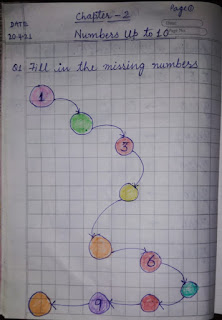 Page ①
Chapter - 2
DATE
20.4.21
Numbers Up to 10
Q1 Fill in the missing numbers
1
3
6
9